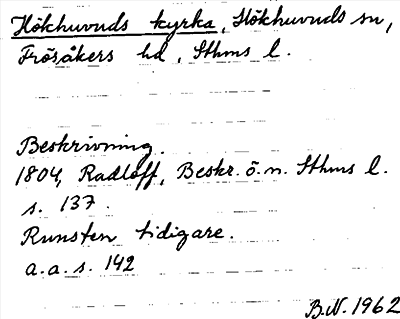 Hökhuvuds kyrka, Hökhuvuds sn,
Frösåkers hd, Sthms l.
Beskrivning.
1804, Radloff, Beskr. ö. n. Sthms l.
s. 137.
Runsten tidigare.
a.a. s. 142
B.W. 1962